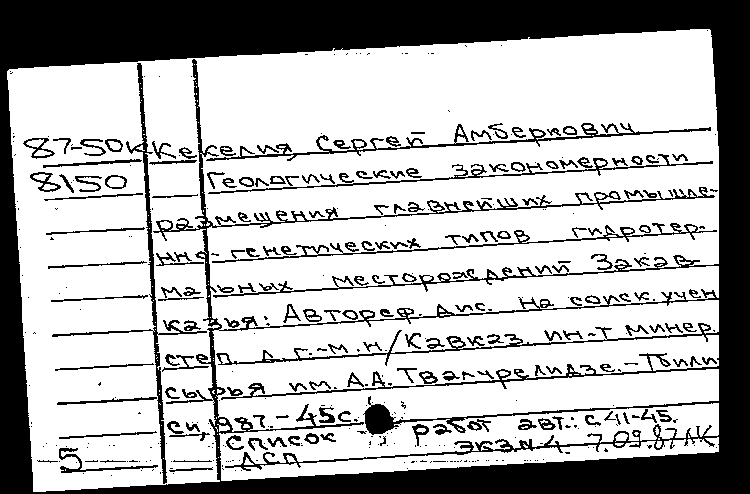 87-50к Кекелия, Сергей Амберкович
8150 Геологические закономерности
размещения главнейших промышле-
нно-генетических типов гидротер-
мальных месторождений Закав-
казья: Автореф. дис. на соиск. учен
степ. д. г.-м. н / Кавказ. ин-т минер.
сырья им. А.А. Твалчрелидзе. - Тбили
си, 1987. - 45с.
Список работ авт.: с. 41-45.
ДСП экз. N 4. 7.09.87 ЛК
5